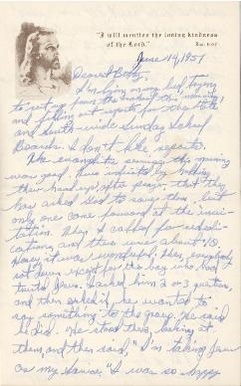 "I will mention the loving kindness
of the Lord." Isa. 63:7
June 14, 1951
Dearest Betty,
I'm lying on my bed, trying
to rest up from the
and filling out reports for the State
and south-wide Sunday School
Boards. I don't like reports.
The evangelistic service this morning
was good. Two indicated by holding
their hand up after prayer, that they
had asked God to save them, but
only one came forward at the invi-
tation. Then I called for rededi-
cations, and there were about 10.
Honey it was wonderful. Then, everybody
sat down except for the boy who had
trusted Jesus. I asked him 2 or 3 questions,
and then asked if he wanted to
say something to the group. He said
he did. He stood there, looking at
them, and then said, "I'm taking Jesus
as my Saviour." I was so happy